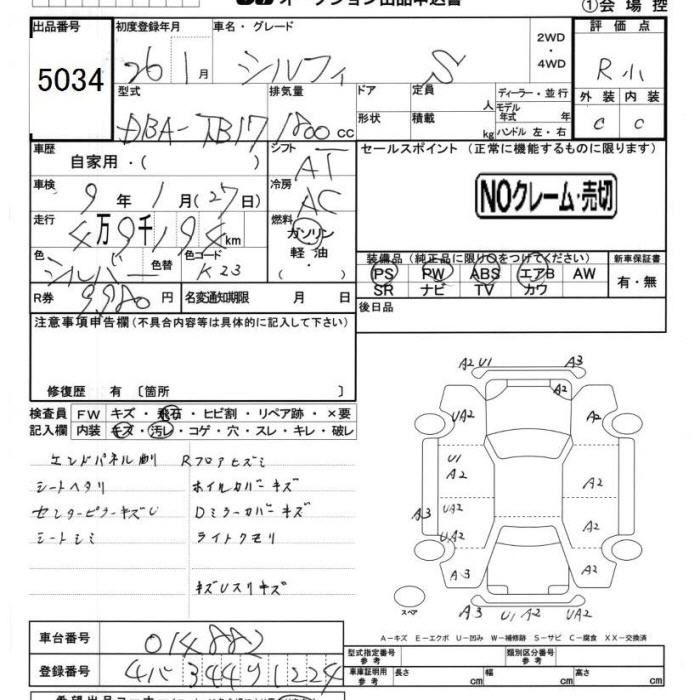 オークション出品申込書
①会場控
出品番号
5034
初度登録年月
26 1月
車名・グレード
シルフィ S
2WD
・
4WD
評価点
R小
外装 内装
C C
型式
DBA-TB17
排気量
1800cc
ドア
定員
人
形状
積載
kg
ディーラー・並行
モデル
年式 年
ハンドル 左・右
車歴
自家用・( )
シフト
AT
セールスポイント (正常に機能するものに限ります)
NOクレーム・売切
車検
9年 1月(27日)
冷房
AC
走行
4万9千194km
燃料
ガソリン
軽油
( ・ )
色
シルバー
色替
色コード
K23
装備品 (純正品に限り○をつけてください)
PS PW ABS エアB AW
SR ナビ TV カワ
新車保証書
有・無
R券
9980円
名変通知期限 月 日
後日品
注意事項申告欄 (不具合内容等は具体的に記入して下さい)
修復歴 有 〔箇所 〕
検査員
記入欄
FW キズ・飛石・ヒビ割・リペア跡・×要
内装 キズ・汚レ・コゲ・穴・スレ・キレ・破レ
エンドパネル剛 Rフロアヒズミ
シートヘタリ ホイルカバーキズ
センターピラーキズU Dミラーカバーキズ
シートシミ ライトクモリ
キズUスリキズ
A2 U1 A3
UA2 A2
U1
A2 A2
A3 UA2 A2
UA2
A3 A2
スペア
A3 U1 A2 UA2
A-キズ E-エクボ U-凹み W-補修跡 S-サビ C-腐食 XX-交換済
車台番号
014882
登録番号
型式指定番号
参考
類別区分番号
参考
車庫証明用
参考
長さ cm 幅 cm 高さ cm
希望出品コーナー